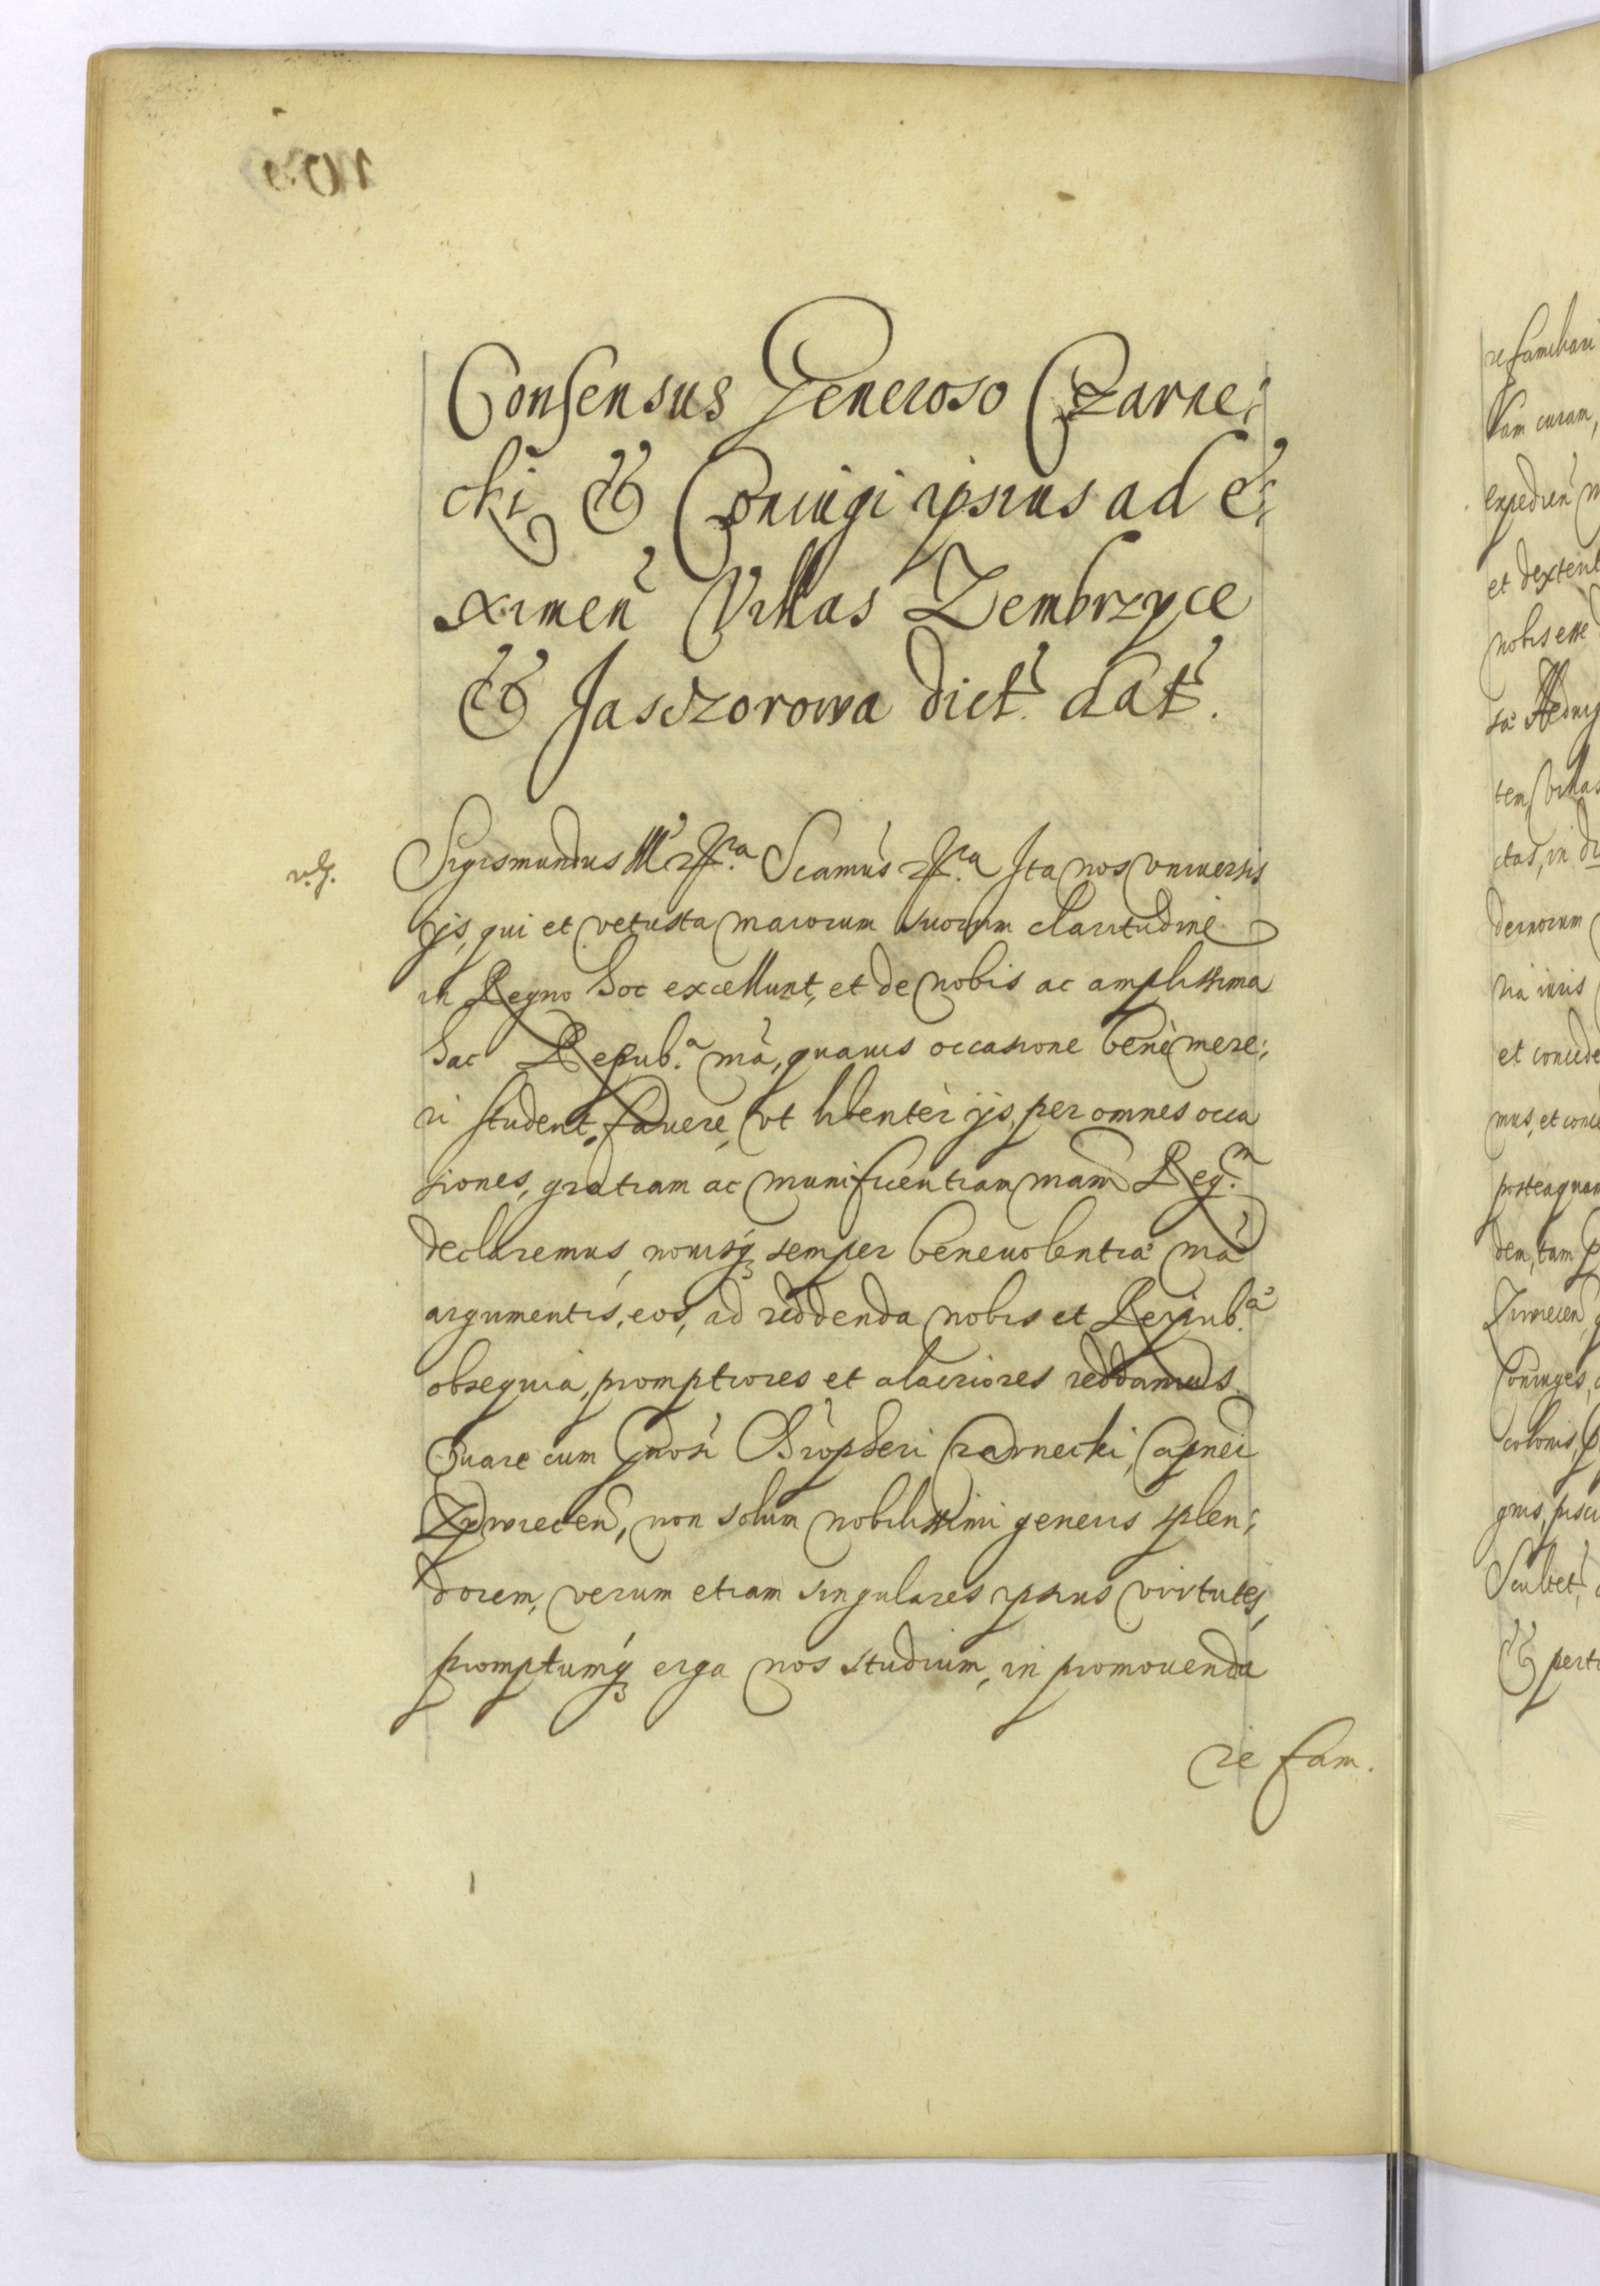 Consensus Generoso Czarne:
cki & Coniugi ipsius ad e:
ximen Villas Zembrzyce
& Jasczorowa dict. dat.
Sigismundus III Scamus Ita nos vniuersis
ijs, qui et vetusta maiorum suorum claritudine
in Regno hoc excellunt, et de nobis ac amplissima
hac Repub.a nra, quauis occasione benè mere:
ri student, fauere, vt libenter ijs, per omnes occa
siones, gratiam ac munificentiam nram Reg.m
declaremus, nouisq semper beneuolentiae nrae
argumentis, eos, ad reddenda nobis et Reipub.ae
obsequia, promptiores et alacriores reddamus.
Quare cum Czarnecki, Capnei
Zywiecen, non solum nobilissimi generis splen:
dorem, verum etiam singulares ipsius virtutes,
promptumq erga nos studium, in promouenda
re fam.
re familiari
nam curam,
expedien
et dexterit
nobis esse
tem, villas
ctas, in
dernorum
ria iuris
et concede
mus, et conce
posteaquam
dem, tam
Ziwiecen,
Coniuges,
colonis,
gnis, pisci
Scultet
& perti